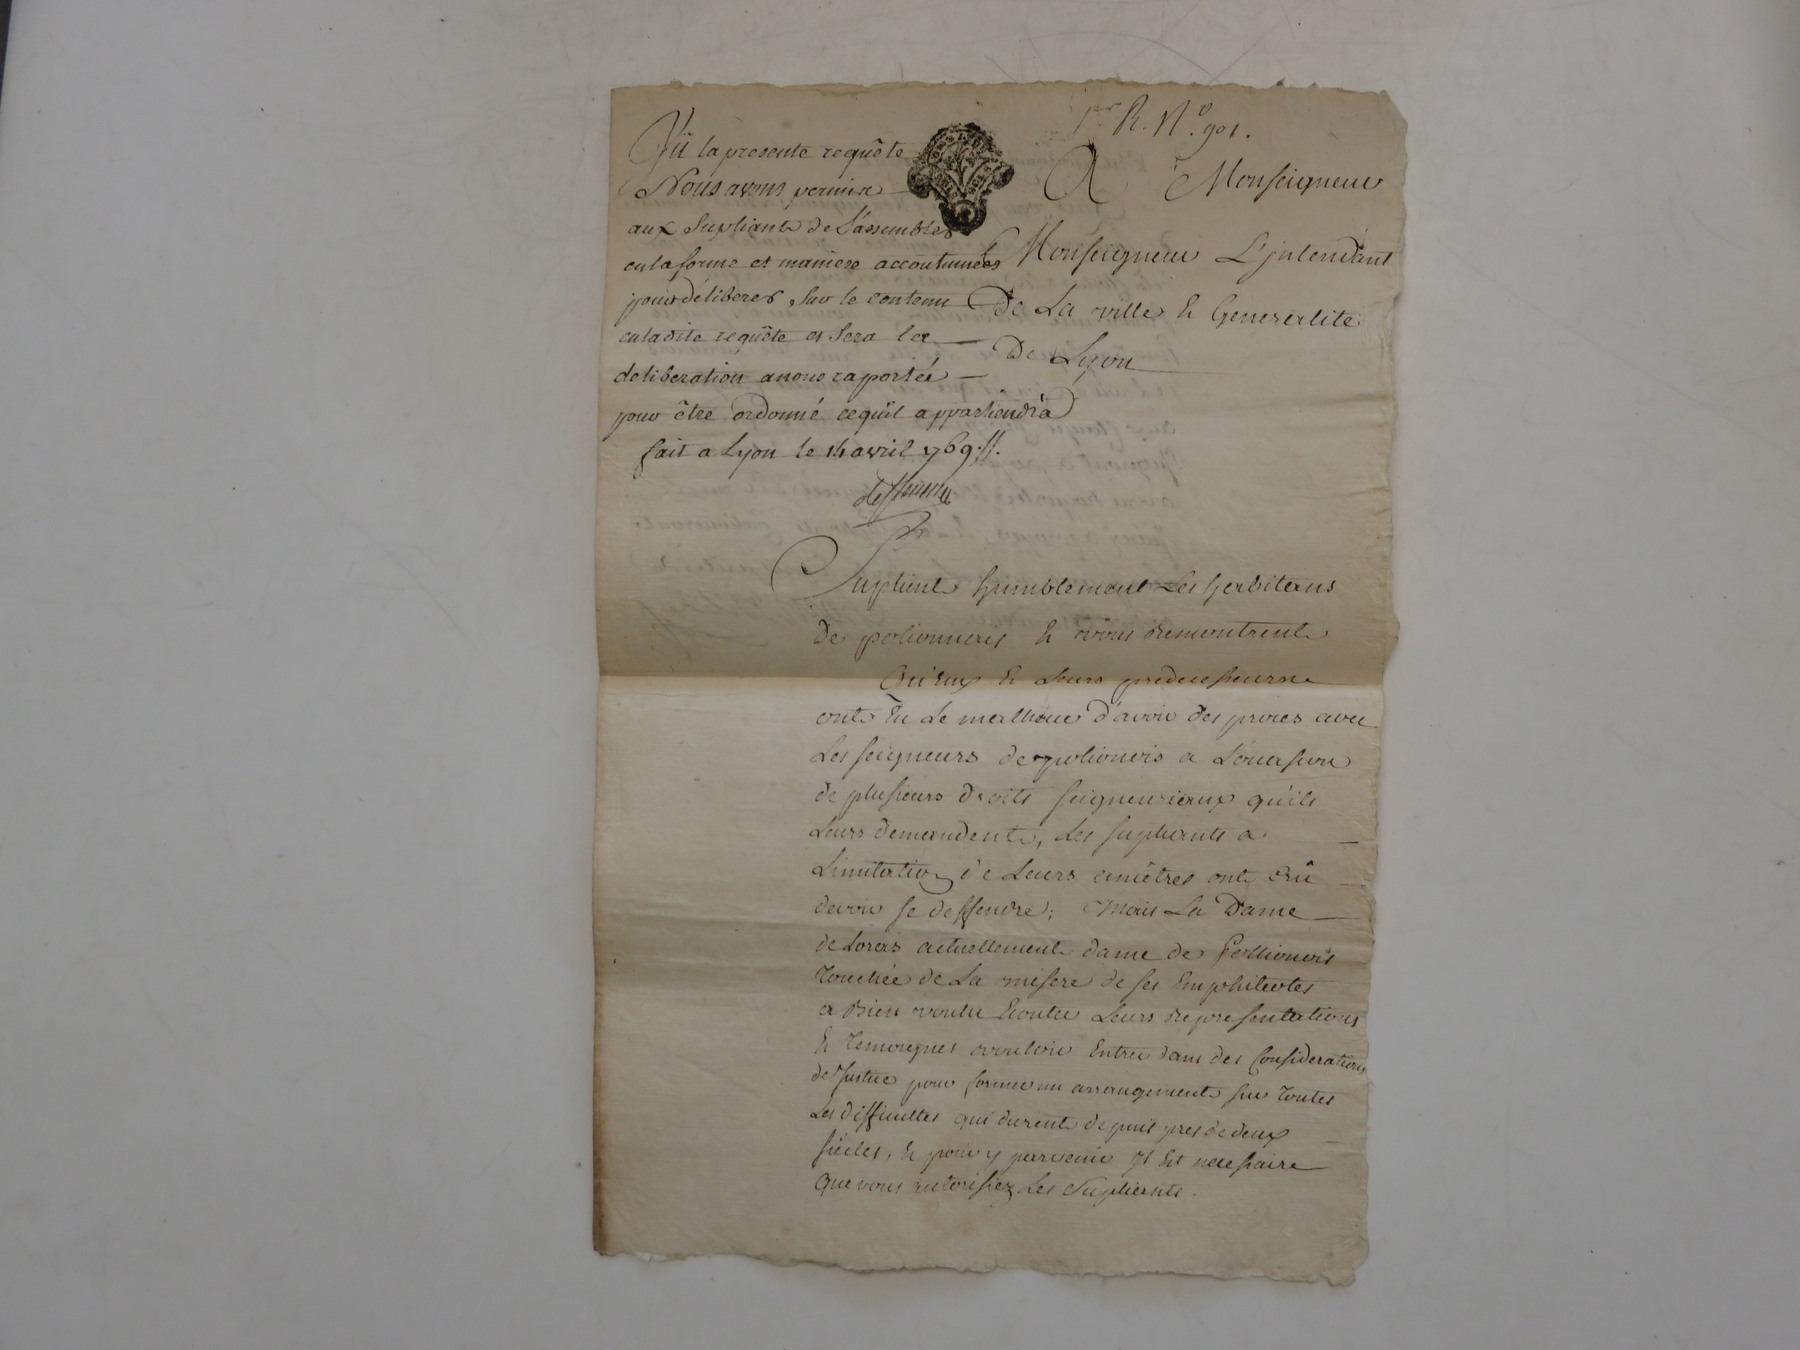 R. N.º 901.
Vü la presente requête
Nous avons permis
aux Supliants de S'assembler
en la forme et maniere accoutumées
pour déliberer sur le contenu
en ladite requête et sera la
deliberation a nous raportée
pour être ordonné ce qu'il appartiendra
fait a Lyon le 14 avril 1769.
A Monseigneur
Monseigneur L'jntendant
De La ville & Generalite
De Lyon
Suplient humblement Les habitans
De polionneis & vous remontrent
Qu'eux & Leurs predecesseurs
ont Eu Le malheur d'avoir des proces avec
Les seigneurs de polioneis a L'ocasion
de plusieurs droits seigneuriaux qu'ils
Leurs demandent, Les supliants a
L'imitation de Leurs ancêtres ont Crû
devoir se deffendre; Mais La Dame
de Loras actuellement dame de Pollioneis
Touchée de La misere de ses Emphiteotes
a Bien voulu Ecouter Leurs representations
& Temoigner vouloir Entrer dans des Considerations
de Justice pour former un arrangement sur Toutes
Les difficultes qui durent depuis pres de deux
siécles, & pour y parvenir Jl Est necessaire
Que vous autorisiez Les Supliants.